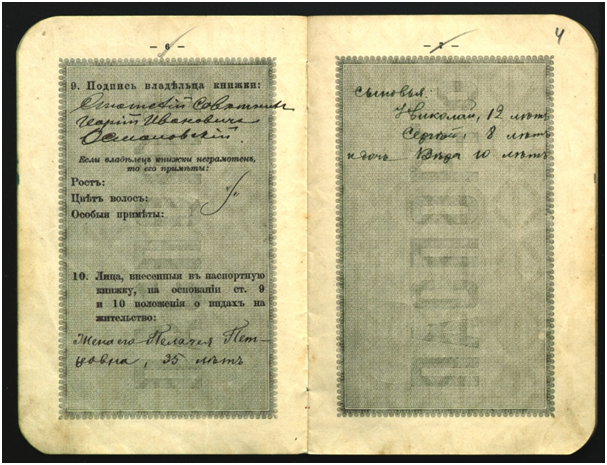 – 6 –
9. Подпись владѣльца книжки:
Статскій Совѣтникъ
Георгій Ивановичъ
Османовскій.
Если владѣлецъ книжки неграмотенъ,
то его примѣты:
Ростъ:
Цвѣтъ волосъ:
Особыя примѣты:
10. Лица, внесенныя въ паспортную
книжку, на основаніи ст. 9
и 10 положенія о видахъ на
жительство:
Жена его Пелагея Пет-
ровна, 35 лѣтъ
– 7 –
4
сыновья:
Николай, 12 лѣтъ
Сергѣй, 8 лѣтъ
и дочь Вѣра 10 лѣтъ
ПАСПОРТ